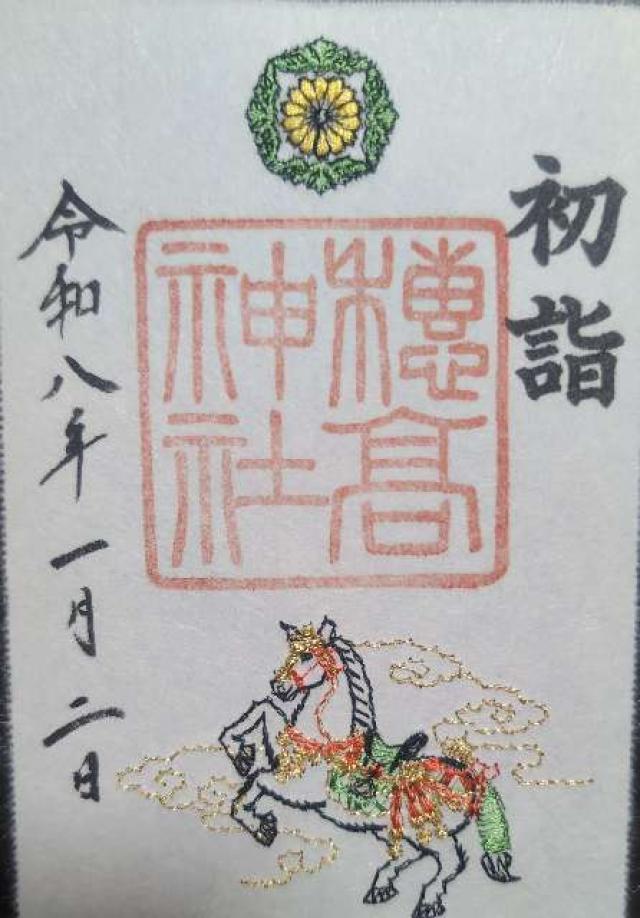 初詣
穂高
神社
令和八年一月二日